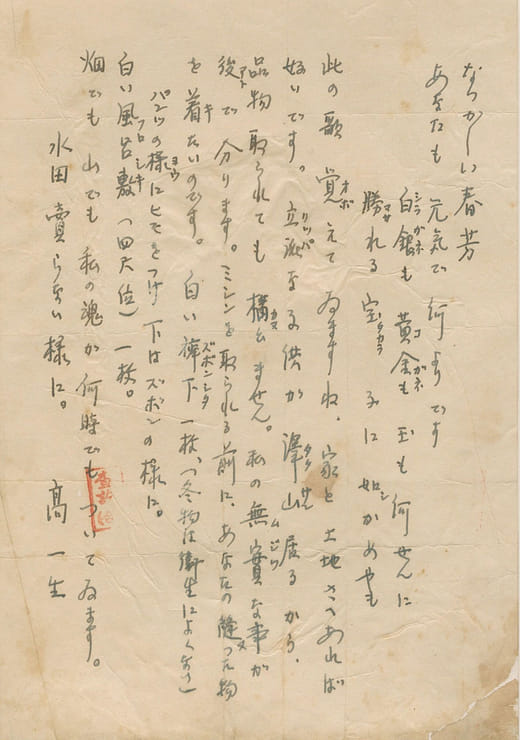 なつかしい春芳
あなたも元気で何よりです
白銀も黄金も玉も何せんに
シロガネ コガネ
勝れる宝子に如かめやも
マサ タカラ シ
此の歌覚えてゐますね、家と土地さへあれば
オボ
好いです。立派な子供が澤山居るから、
リッパ タクサン
品物取られても構ひません。私の無實な事が
カマ ムジツ
後で分ります。ミシンを取られる前に、あなたの縫った物
アト ヌ
を着たいのです。白い袴下一枚、(冬物は衛生によくない)
キ ズボンシタ
パンツの様にヒモをつけ下はズボンの様に。
ヨウ
白い風呂敷(四尺位)一枚。
フロシキ
畑でも山でも私の魂が何時でもついてゐます。
水田賣らない様に。
高一生